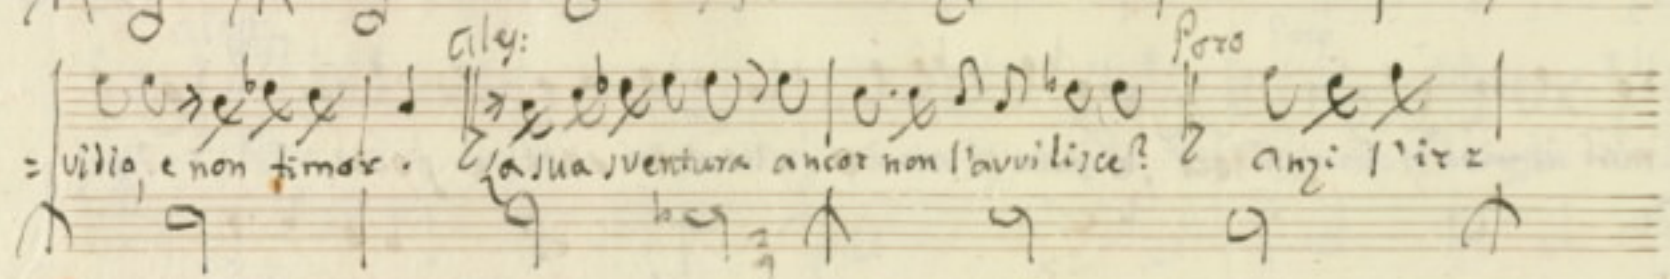 Aleſ: Poro
= vidia, e non timor. La sua sventura ancor non l'avvilisce? anzi l'irr